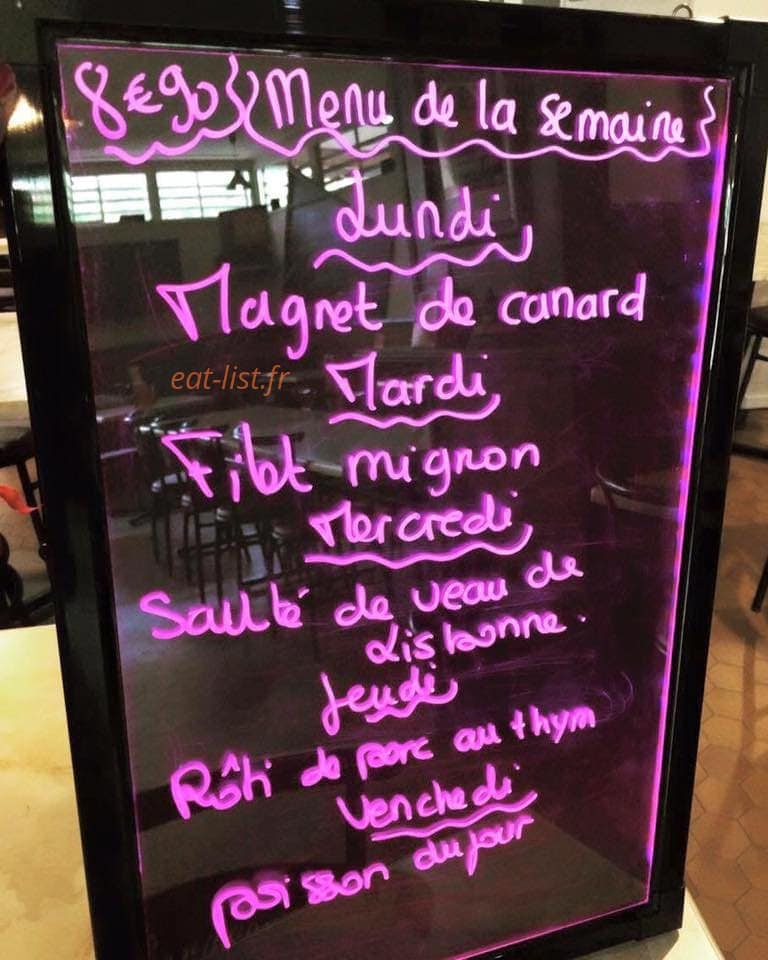 8€90 Menu de la semaine
Lundi
Magret de canard
eat-list.fr
Mardi
Filet mignon
Mercredi
Sauté de veau de
Lisbonne.
Jeudi
Rôti de porc au thym
Venchedi
poisson du jour